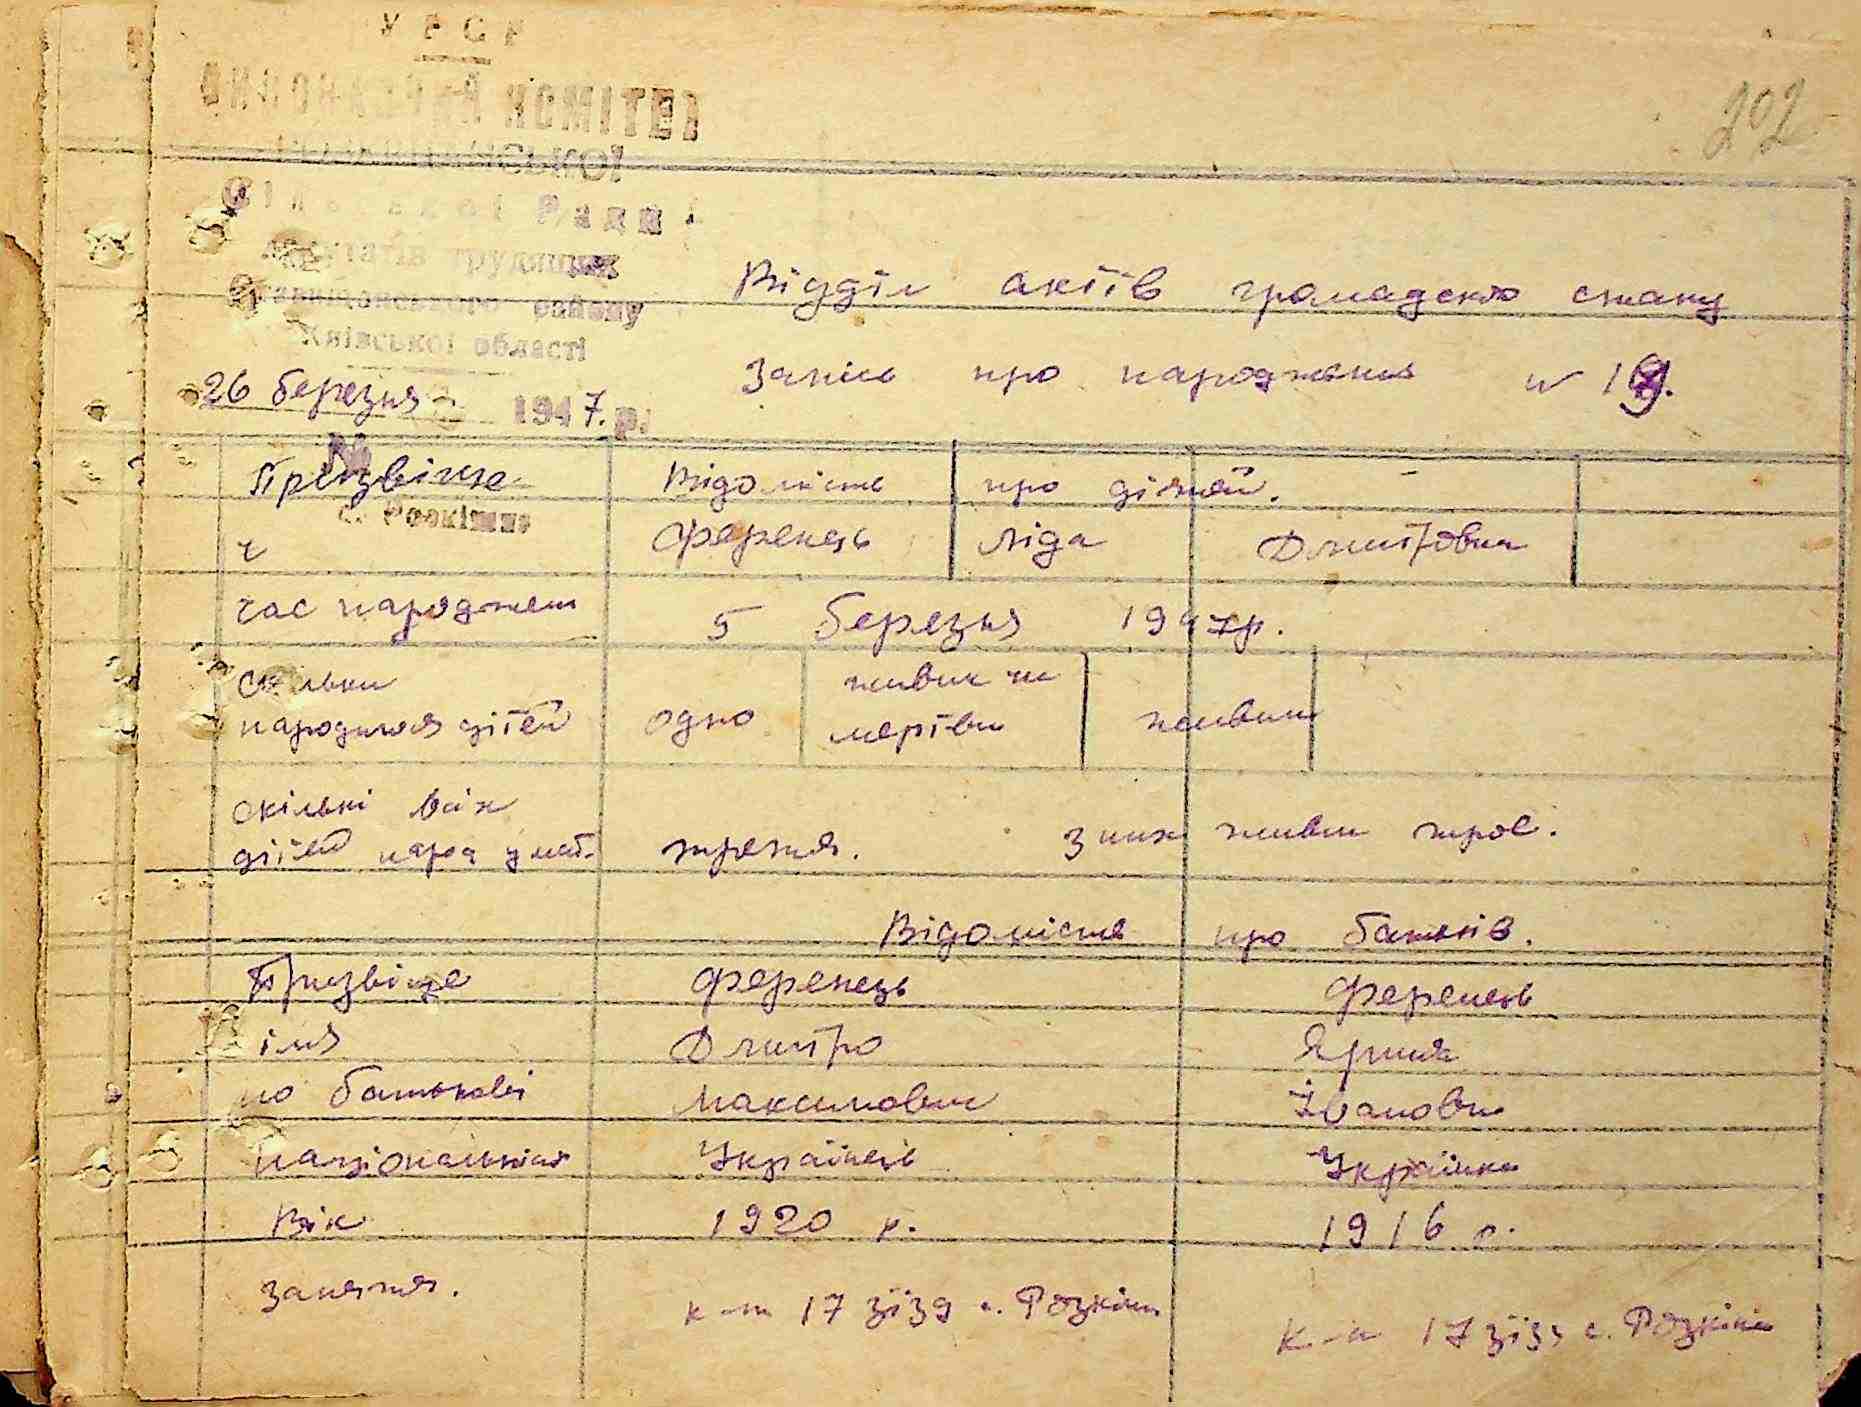 УРСР
202
ВИКОНАВЧИЙ КОМІТЕТ
Сільської Ради
депутатів трудящих
Ставищанського району
Київської області
Відділ актів громадского стану
26 березня 1947.р.
Запись про народження № 19.
№
Призвіще
с. Розкішна
Відомість про дітей.
Ференець Ліда Дмитровна
час народжен 5 березня 1947р.
скільки народилося дітей одно живих чи мертви живим
скількі всіх дітей народ у мат. третя. з них живи троє.
Відомість про батьків.
Призвіще Ференець Ференець
імя Дмитро Ярина
по батькові Максимович Івановна
національність Українець Українка
Вік 1920 р. 1916 р.
заняття. к-п 17 зїзд с. Розкішн к-п 17 зїзд с. Розкішн